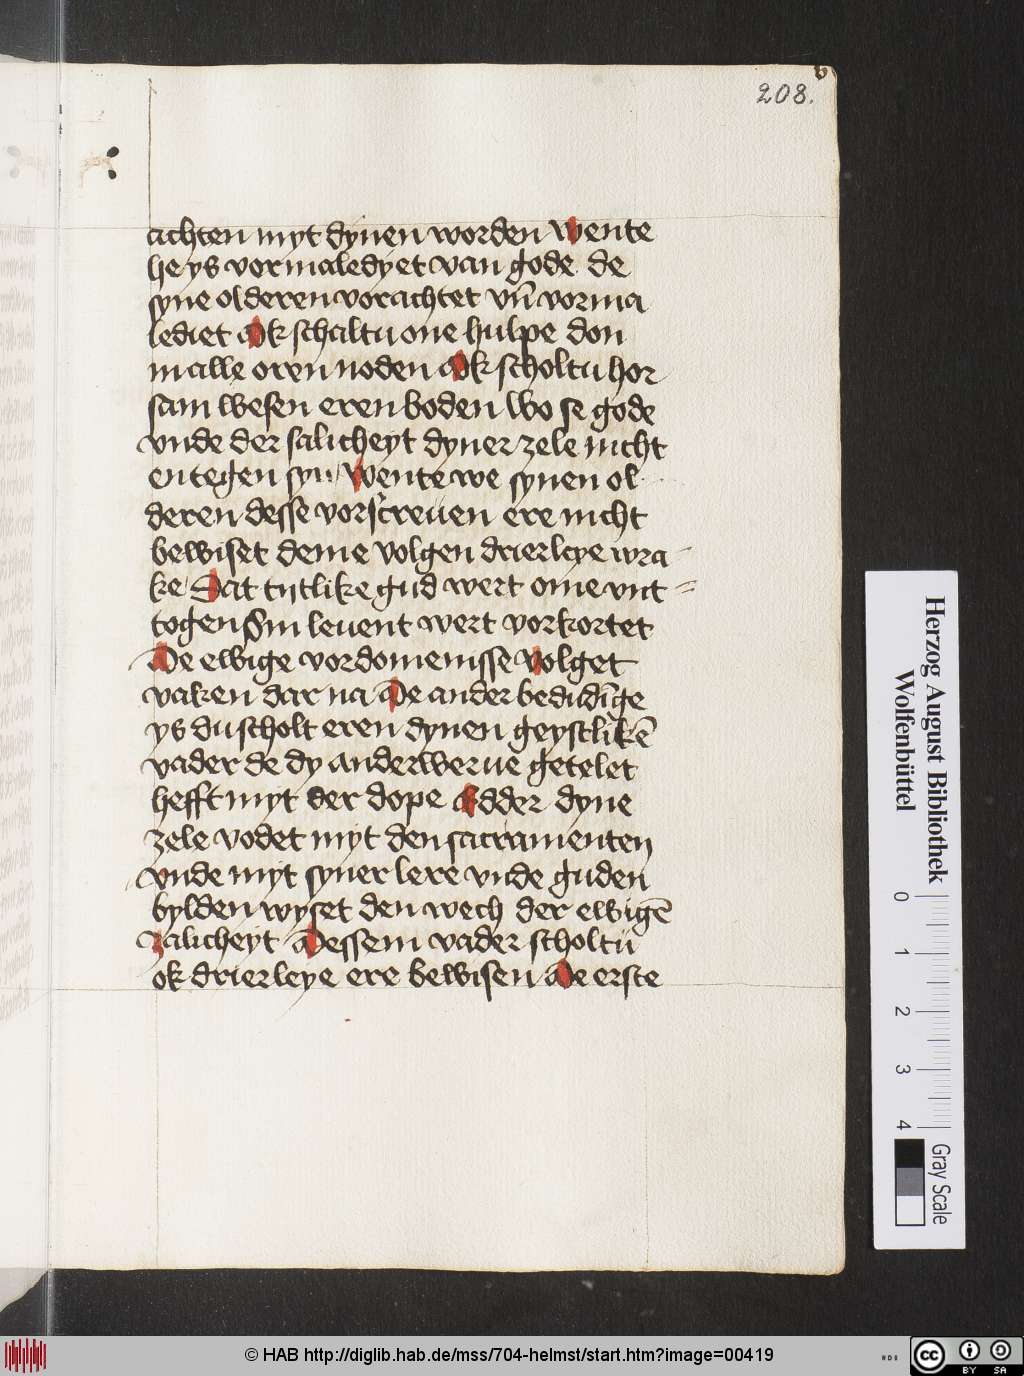 208.
achten myt dynen worden Wente
he ys vormaledyet van gode de
syne olderen vorachtet vn̄ vorma
lediet Ok schaltu one hulpe don
in alle oren noden Ok scholtu hor
sam wesen eren boden wo se gode
vnde der salicheyt dyner zele nicht
entegen syn Wente we synen ol
deren desse vorscreuen ere nicht
bewiset deme volgen drierleye wra
ke Dat tijtlike gud wert ome vnt
togen Sin leuent wert vorkortet
De ewige vordomenisse volget
vaken dar na De ander bedudīge
ys du scholt eren dynen geystlikē
vader de dy anderwerue getelet
hefft myt der dope Edder dyne
zele vodet myt den sacramenten
vnde myt syner lere vnde guden
bylden wyset den wech der ewigē
zalicheyt Dessem vader scholtu
ok drierleye ere bewisen De erste
Herzog August Bibliothek
Wolfenbüttel
0 1 2 3 4
Gray Scale
© HAB http://diglib.hab.de/mss/704-helmst/start.htm?image=00419
HAB
cc BY SA